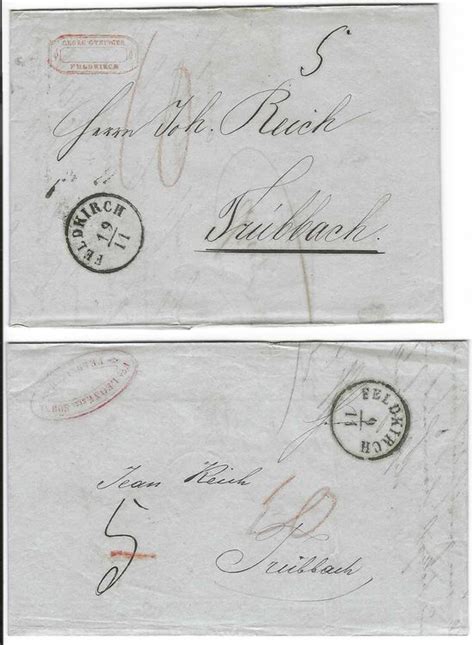 FELDKIRCH
5
10
Herrn Joh. Reich
FELDKIRCH
19
11
Trübbach.
FELDKIRCH
9
11
Jean Reich
5
10
Trübbach